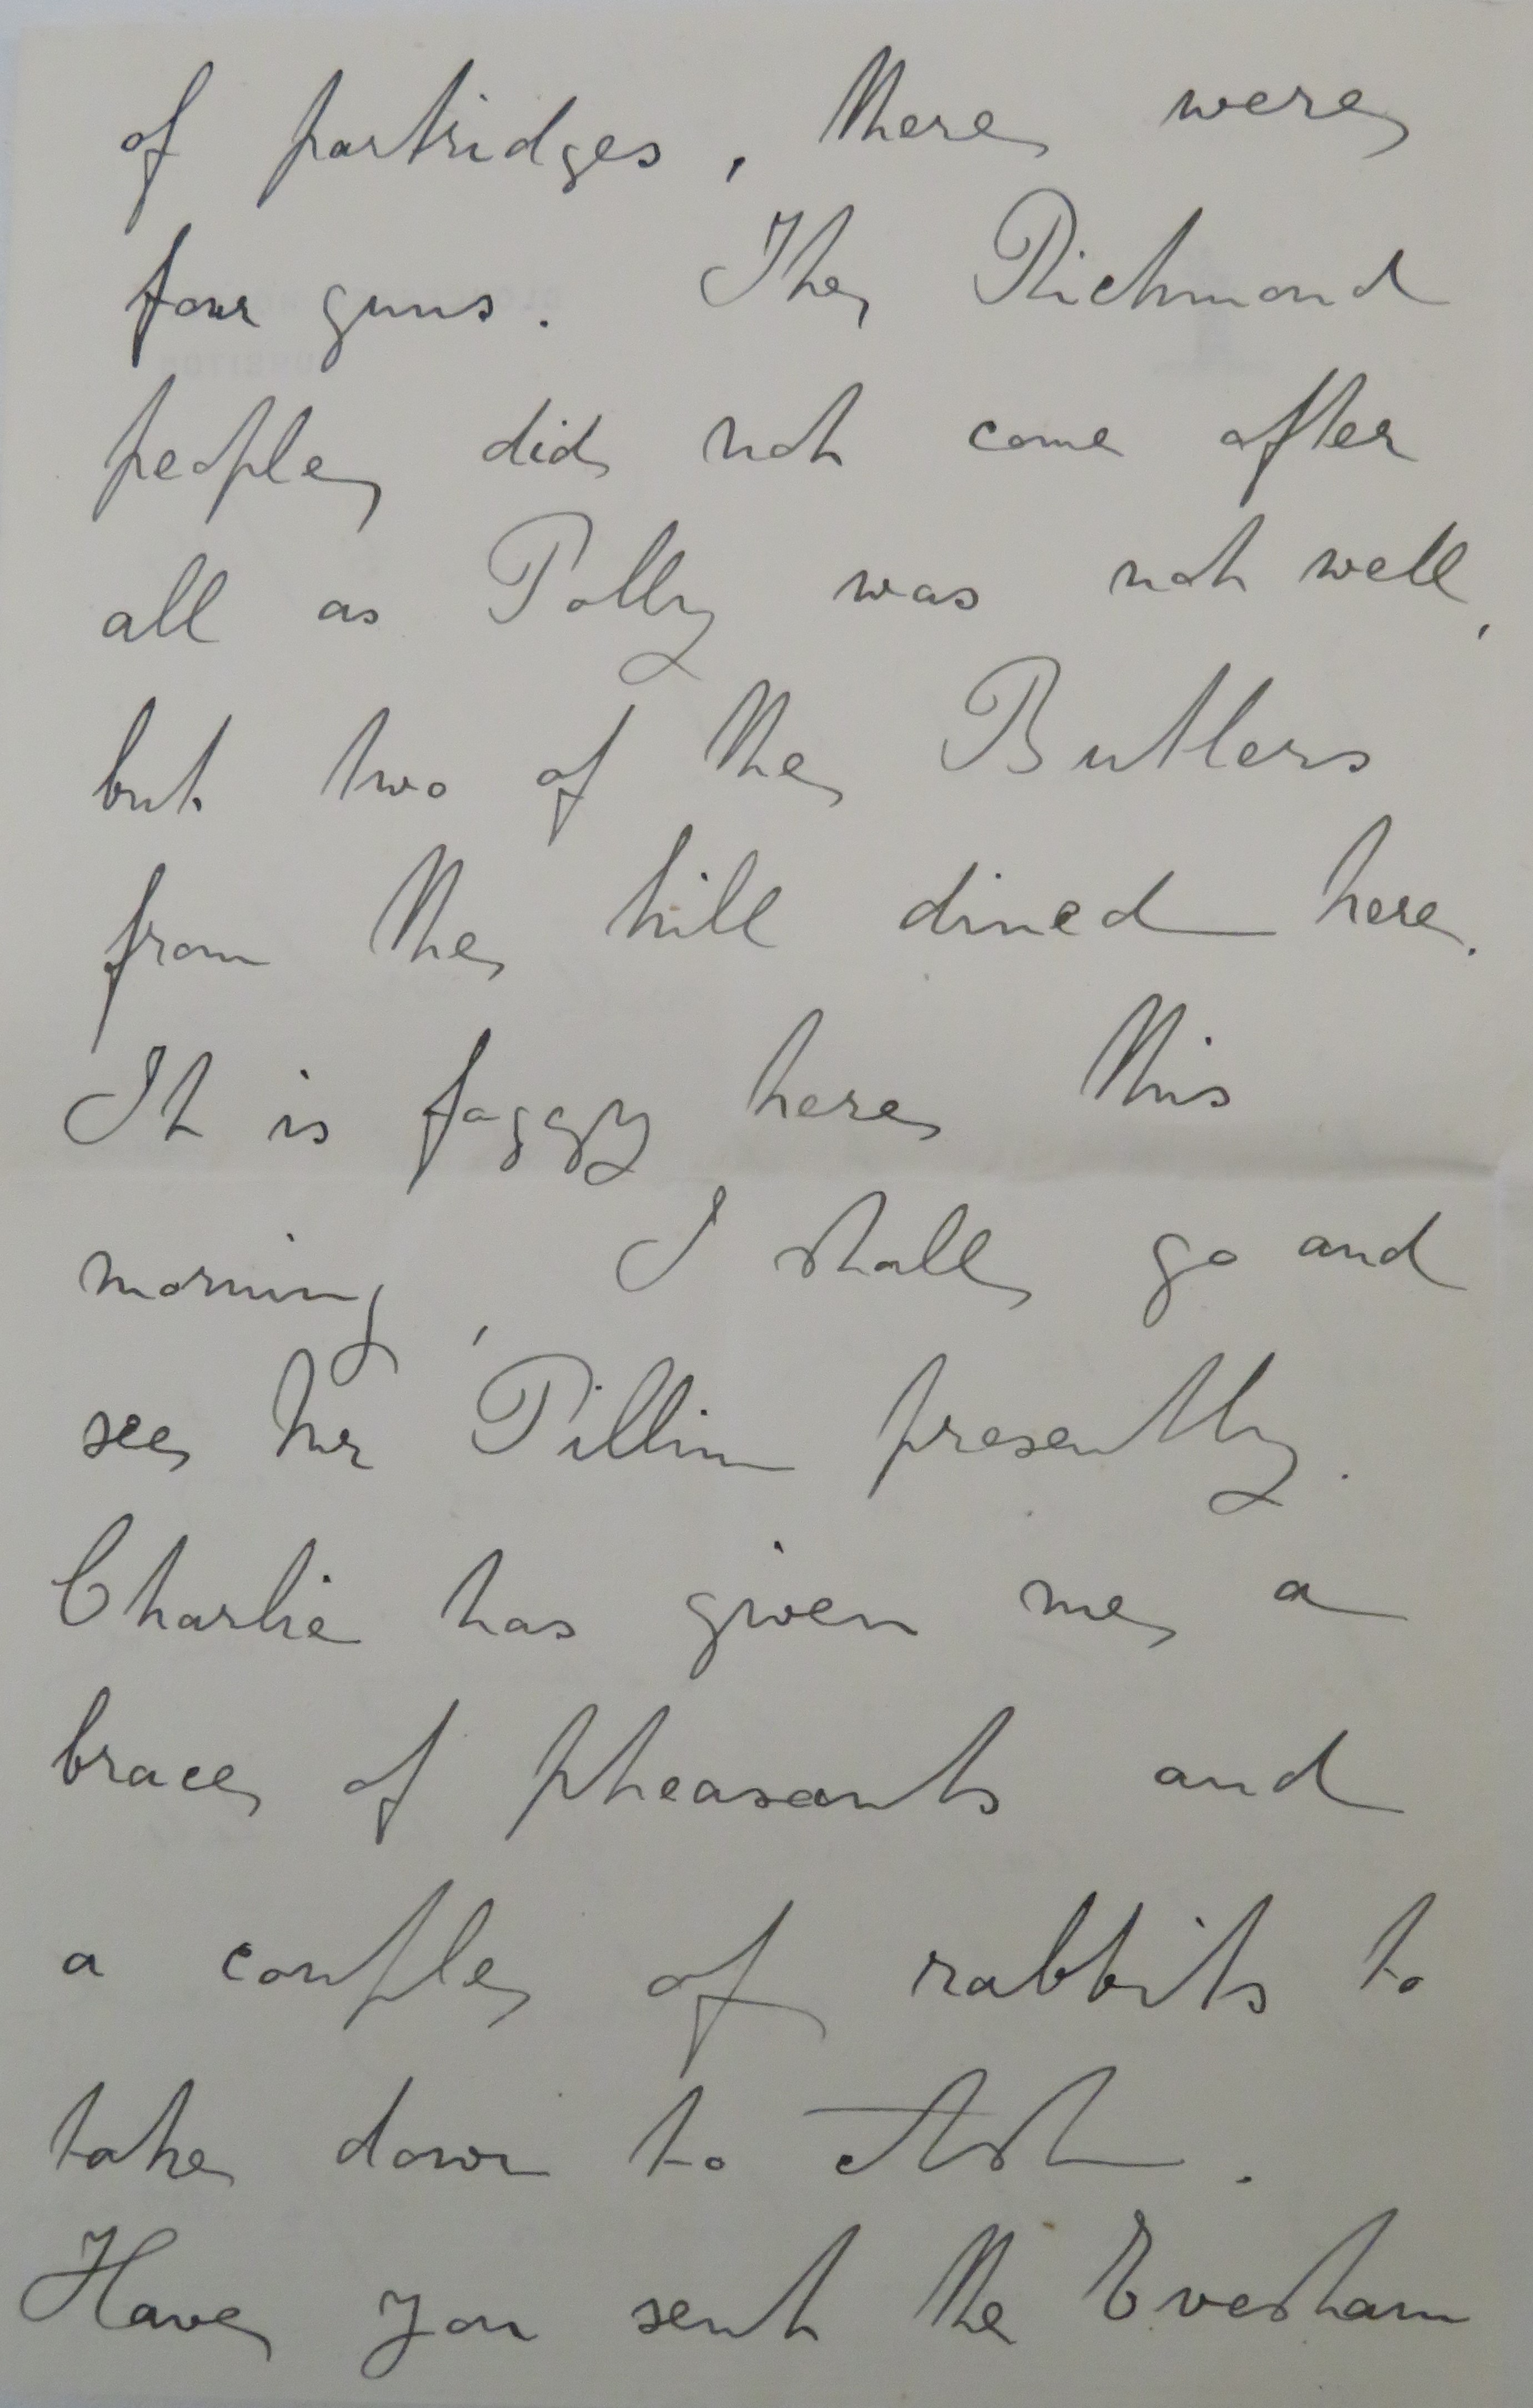 of partridges, there were
four guns. The Richmond
people did not come after
all as Polly was not well,
but two of the Butlers
from the hill dined here.
It is foggy here this
morning, I shall go and
see Mr Pillin presently.
Charlie has given me a
brace of pheasants and
a couple of rabbits to
take down to Ash.
Have you sent the Evesham